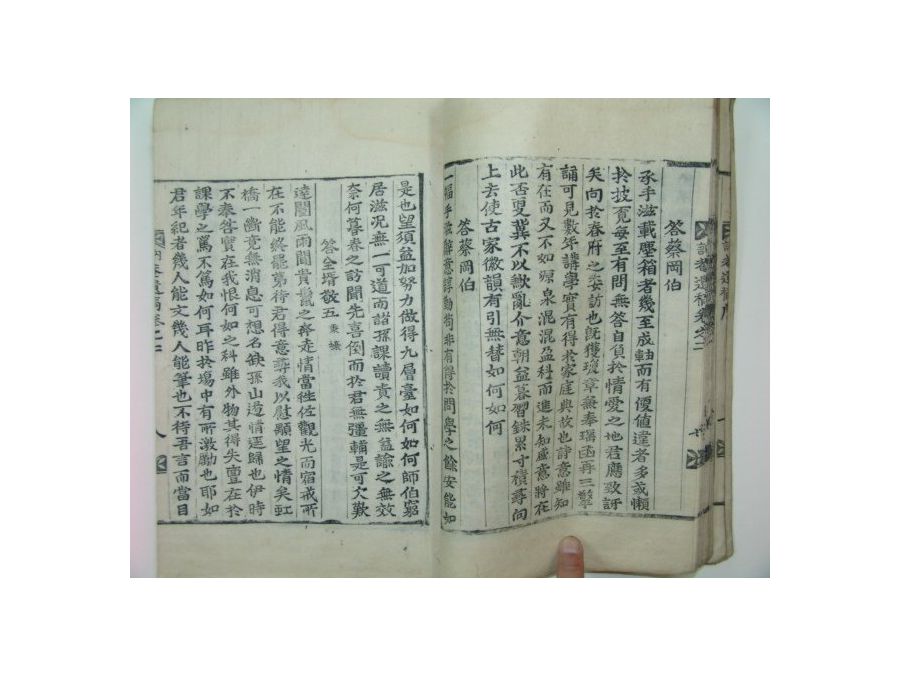 答蔡岡伯
承手滋載塵箱者幾至成軸而有便值達者多或懶
於披覓每至有問無答自負於情愛之地君應致訝
矣向於春府之委訪也旣獲瓊章兼奉琚函再三擎
誦可見數年講學實有得於家庭典故也詩意雖知
有在而又不如源泉混混盈科而進未知盛意將在
此否更冀不以歉亂介意朝益暮習銖累寸積尋向
上去使古家微韻有引無替如何如何
答蔡岡伯
一福手滋辭意諄勤苟非有得於問學之餘安能如
是也望須益加努力做得九層臺如何如何師伯窮
居滋況無一可道而諸孫課讀責之無益諭之無效
奈何暮春之訪聞先喜倒而於君無彊輔是可欠歎
答全壻敬五
遠閣風雨間貴鬣之奔走情當往佐觀光而宿戒所
在不能終罷第待君得意尋我以慰顒望之情矣虹
橋一斷竟無消息可想名缺孫山逕情逕歸也伊時
不奉答實在我恨何如之科雖外物其得失亶在於
課學之篤不篤如何耳昨於場中有所激勵也耶如
君年紀者幾人能文幾人能筆也不待吾言而當目
遺稿卷之二
八